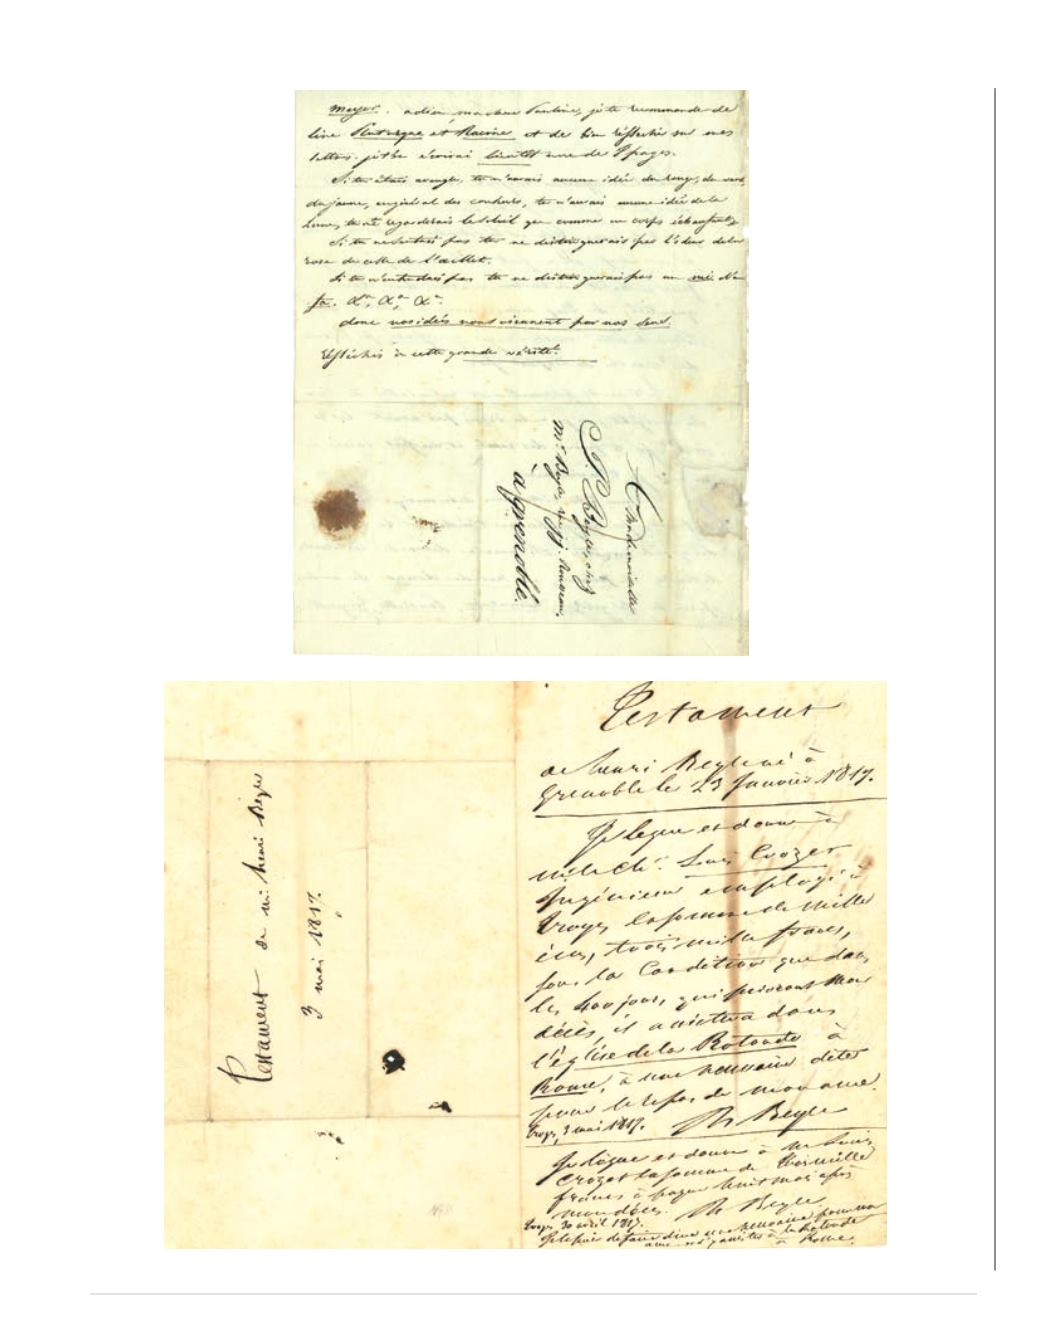 moyen. adieu, ma chère Pauline, je te recommande de
lire Plutarque et Racine et de bien réfléchir sur mes
lettres. je t'en écrirai bientôt une de 8 pages.
Si tu étais aveugle, tu n'aurais aucune idée du rouge, du vert,
du jaune, en général des couleurs, tu n'aurais aucune idée de la
tu ne regarderais le soleil que comme un corps échauffant.
Si tu ne sentais pas tu ne distinguerais pas l'odeur de la
rose de celle de l'œillet.
Si tu n'entendais pas tu ne distinguerais pas un mi d'un
fa. &a, &a, &a.
donc nos idées nous viennent par nos sens.
réfléchis à cette grande vérité.
À Mademoiselle
P. Beyle, chez
Mr. Beyle, J. Rousseau,
à grenoble.
Testament
de henri Beyle né à
Grenoble le 23 Janvier
Je lègue et donne à
Louis Crozet
Ingénieur employé à
Troyes la somme de mille
écus, trois mille francs,
sous la Condition que dans
les 400 jours, qui suivront mon
décès, il assistera dans
l'église de la Rotonde à
Rome, à une neuvaine dite
pour le repos de mon ame.
Troyes, 3 mai 1817. h Beyle
Je lègue et donne à m Louis
Crozet la somme de trois mille
francs à payer huit mois après
mon décès. h Beyle
Troyes, 30 avril 1817.
Je le prie de faire dire une neuvaine pour mon
ame et d'y assister à la Rotonde
à Rome.
Testament de mi henri Beyle
3 mai 1817.